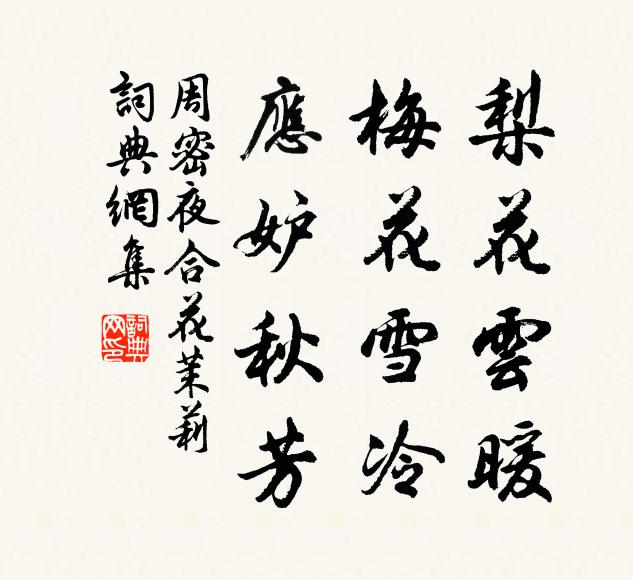 梨花雲暖
梅花雪冷
應妒秋芳
周密夜合花茉莉
詞典網集
詞典网印